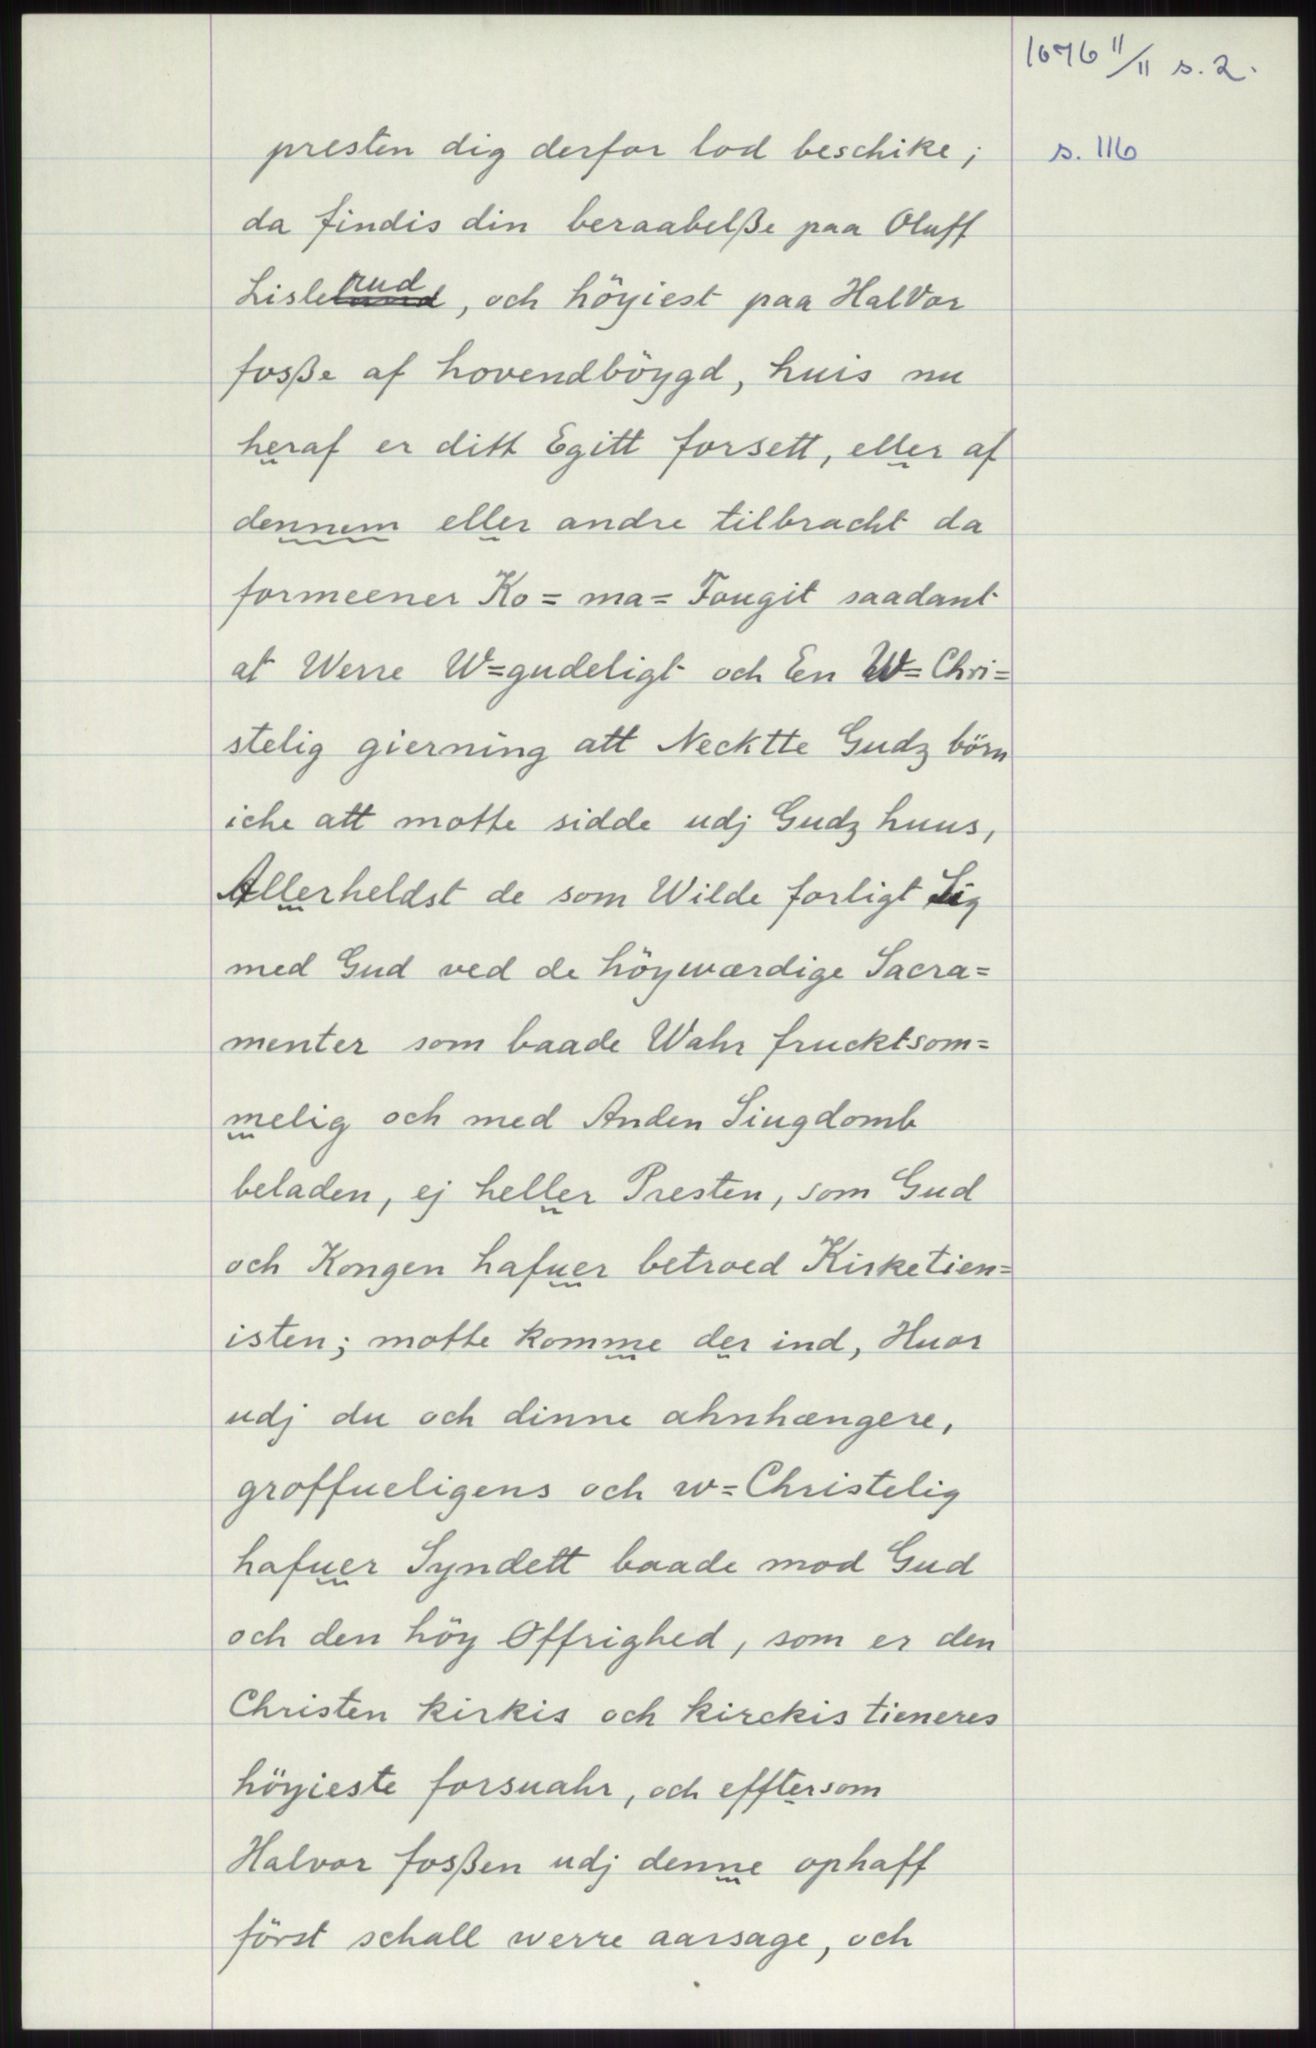 1676 11/11 s. 2.
s. 116
presten dig derfor lod beschike;
da findis din beraabelße paa Oluff
Lislerud, och höyiest paa Halvor
foße af hovendböygd, huis nu
heraf er ditt Egitt forsett, eller af
dennem eller andre tilbracht da
formeener Ko= ma= Fougit saadant
at Werre W=gudeligt och En W= Chri=
stelig gierning att Necktte Gudz börn
iche att motte sidde udj Gudz huus,
Allerheldst de som Wilde forligt Sig
med Gud ved de höywærdige Sacra=
menter som baade Wahr frucktsom=
melig och med Anden Siugdomb
beladen, ej heller Presten, som Gud
och Kongen hafuer betroed Kirketien=
isten; motte komme der ind, Huor
udj du och dinne ahnhængere,
groffueligens och w=Christelig
hafuer Syndett baade mod Gud
och den höy Offrighed, som er den
Christen kirkis och kirckis tieneres
höyieste forsuahr, och efftersom
Halvor foßen udj denne ophaff
först schall werre aarsage, och